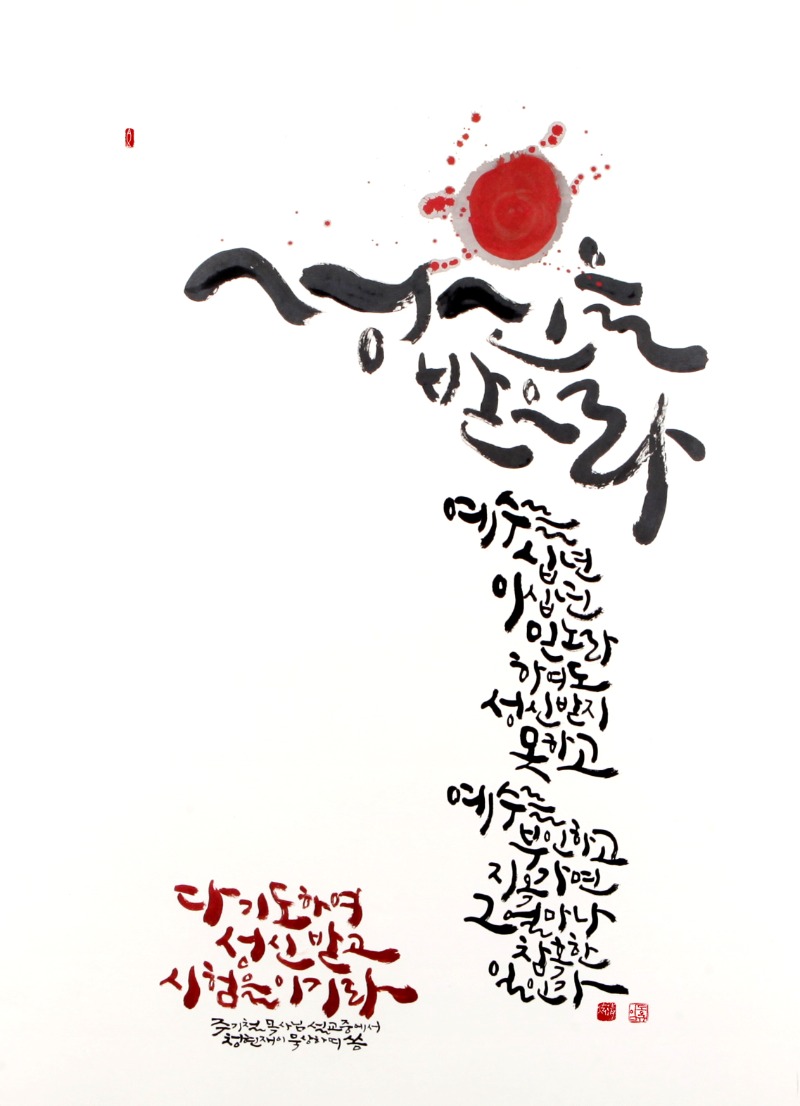 성신을
받으라
예수를
십년
이십년
믿노라
하여도
성신받지
못하고
예수를
부인하고
지옥가면
그 얼마나
참혹한
일인가
다 기도하여
성신 받고
시험을 이기라
주기철 목사님 설교중에서
청현재이 묵상하며 씀